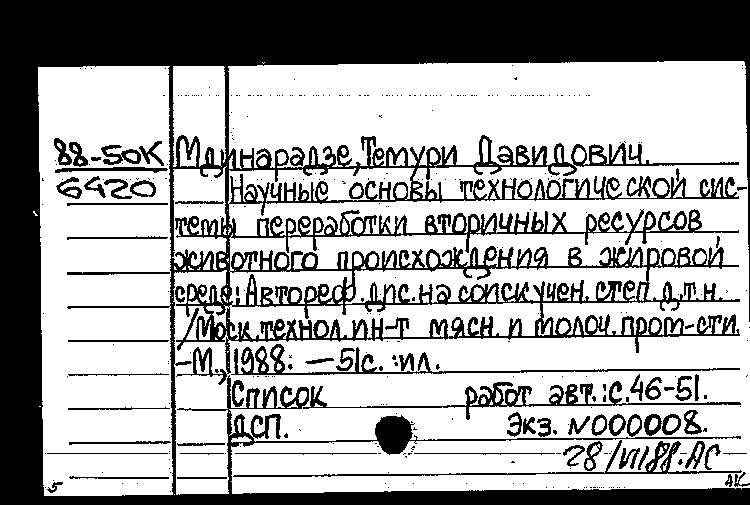 88-50К Мдинарадзе, Темури Давидович.
6420 Научные основы технологической сис-
темы переработки вторичных ресурсов
животного происхождения в жировой
среде: Автореф. дис. на соиск учен. степ. д.т.н.
/Моск. технол. ин-т мясн. и молоч. пром-сти.
-М., 1988. — 51с. :ил.
Список работ авт.: с.46-51.
ДСП. Экз. N000008.
28/VI88. АС
5 АК